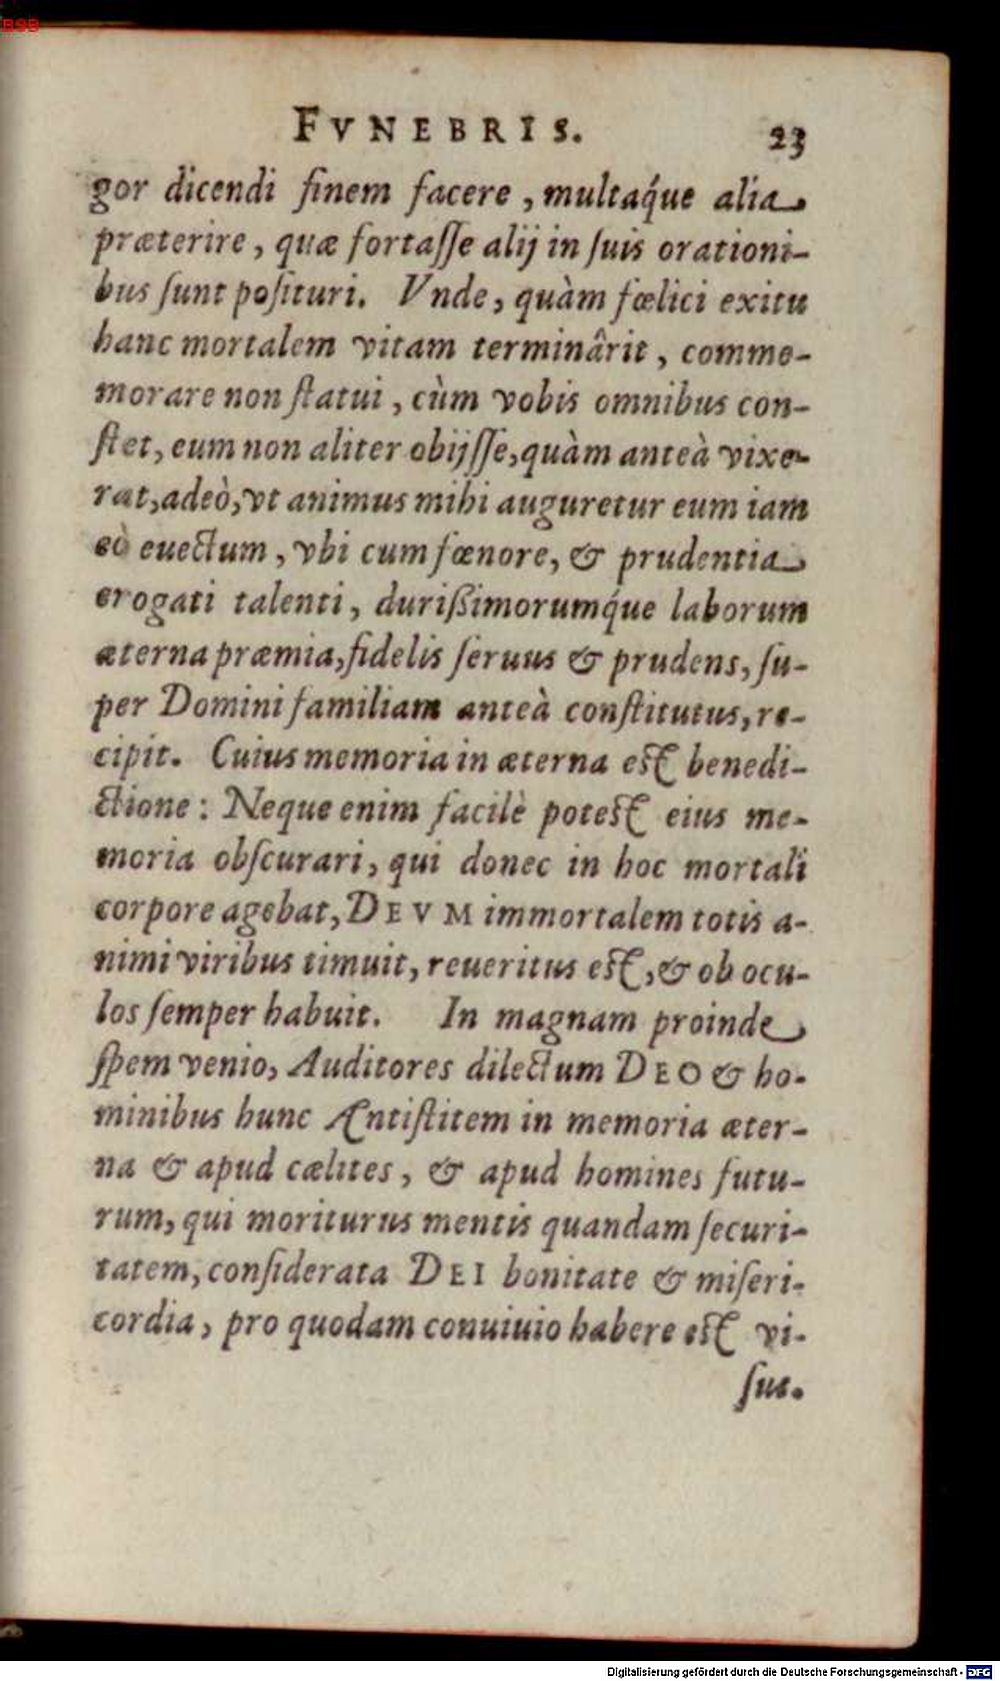 BSB
FVNEBRIS. 23
gor dicendi finem facere, multaq́ue alia
præterire, quæ fortaſſe alij in ſuis orationi-
bus ſunt poſituri. Vnde, quàm fœlici exitu
hanc mortalem vitam terminârit, comme-
morare non ſtatui, cùm vobis omnibus con-
ſtet, eum non aliter obijſſe, quàm anteà vixe-
rat, adeò, vt animus mihi auguretur eum iam
eò euectum, vbi cum fœnore, & prudentia
erogati talenti, durißimorumq́ue laborum
æterna præmia, fidelis ſeruus & prudens, ſu-
per Domini familiam anteà conſtitutus, re-
cipit. Cuius memoria in æterna eſt benedi-
ctione: Neque enim facilè poteſt eius me-
moria obſcurari, qui donec in hoc mortali
corpore agebat, DEVM immortalem totis a-
nimi viribus timuit, reueritus eſt, & ob ocu-
los ſemper habuit. In magnam proinde
ſpem venio, Auditores dilectum DEO & ho-
minibus hunc Æntiſtitem in memoria æter-
na & apud cælites, & apud homines futu-
rum, qui moriturus mentis quandam ſecuri-
tatem, conſiderata DEI bonitate & miſeri-
cordia, pro quodam conuiuio habere eſt vi-
ſus.
Digitalisierung gefördert durch die Deutsche Forschungsgemeinschaft - DFG